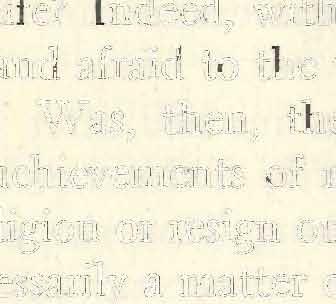 Indeed, with
and afraid to the
Was, then, the
achievements of
religion or resign our
essarily a matter